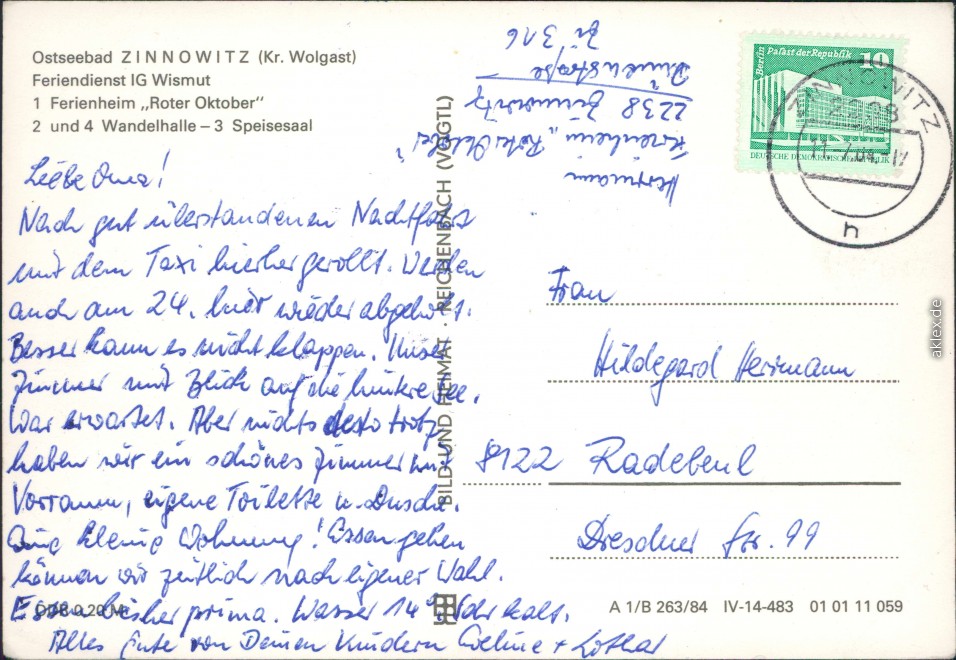 Ostseebad ZINNOWITZ (Kr. Wolgast)
Feriendienst IG Wismut
1 Ferienheim „Roter Oktober"
2 und 4 Wandelhalle – 3 Speisesaal
Liebe Oma!
Nach gut überstandenen Nachtfahrt
mit dem Taxi hierher gerollt. Werden
auch am 24. hier wieder abgeholt.
Besser kann es nicht klappen. Unser
Zimmer mit Blick auf die hintere See.
War erwartet. Aber nichts desto trotz
haben wir ein schönes Zimmer mit
Vorraum, eigene Toilette u. Dusche.
Eine kleine Wohnung! Essen gehen
können wir zeitlich nach eigener Wahl.
Essen bisher prima. Wasser 14° sehr kalt.
Alles Gute von Deinen Kindern Eveline + Lothar
EVP 0,20 M
BILD UND HEIMAT · REICHENBACH (VOGTL)
Herrmann
Ferienheim „Roter Oktober"
2238 Zinnowitz
Dünenstraße
Zi 316
Berlin Palast der Republik
10
DEUTSCHE DEMOKRATISCHE REPUBLIK
ZINNOWITZ
2238
11.-7.84.-17
h
Frau
Hildegard Herrmann
8122 Radebeul
Dresdner Str. 99
A 1/B 263/84 IV-14-483 01 01 11 059
aklex.de